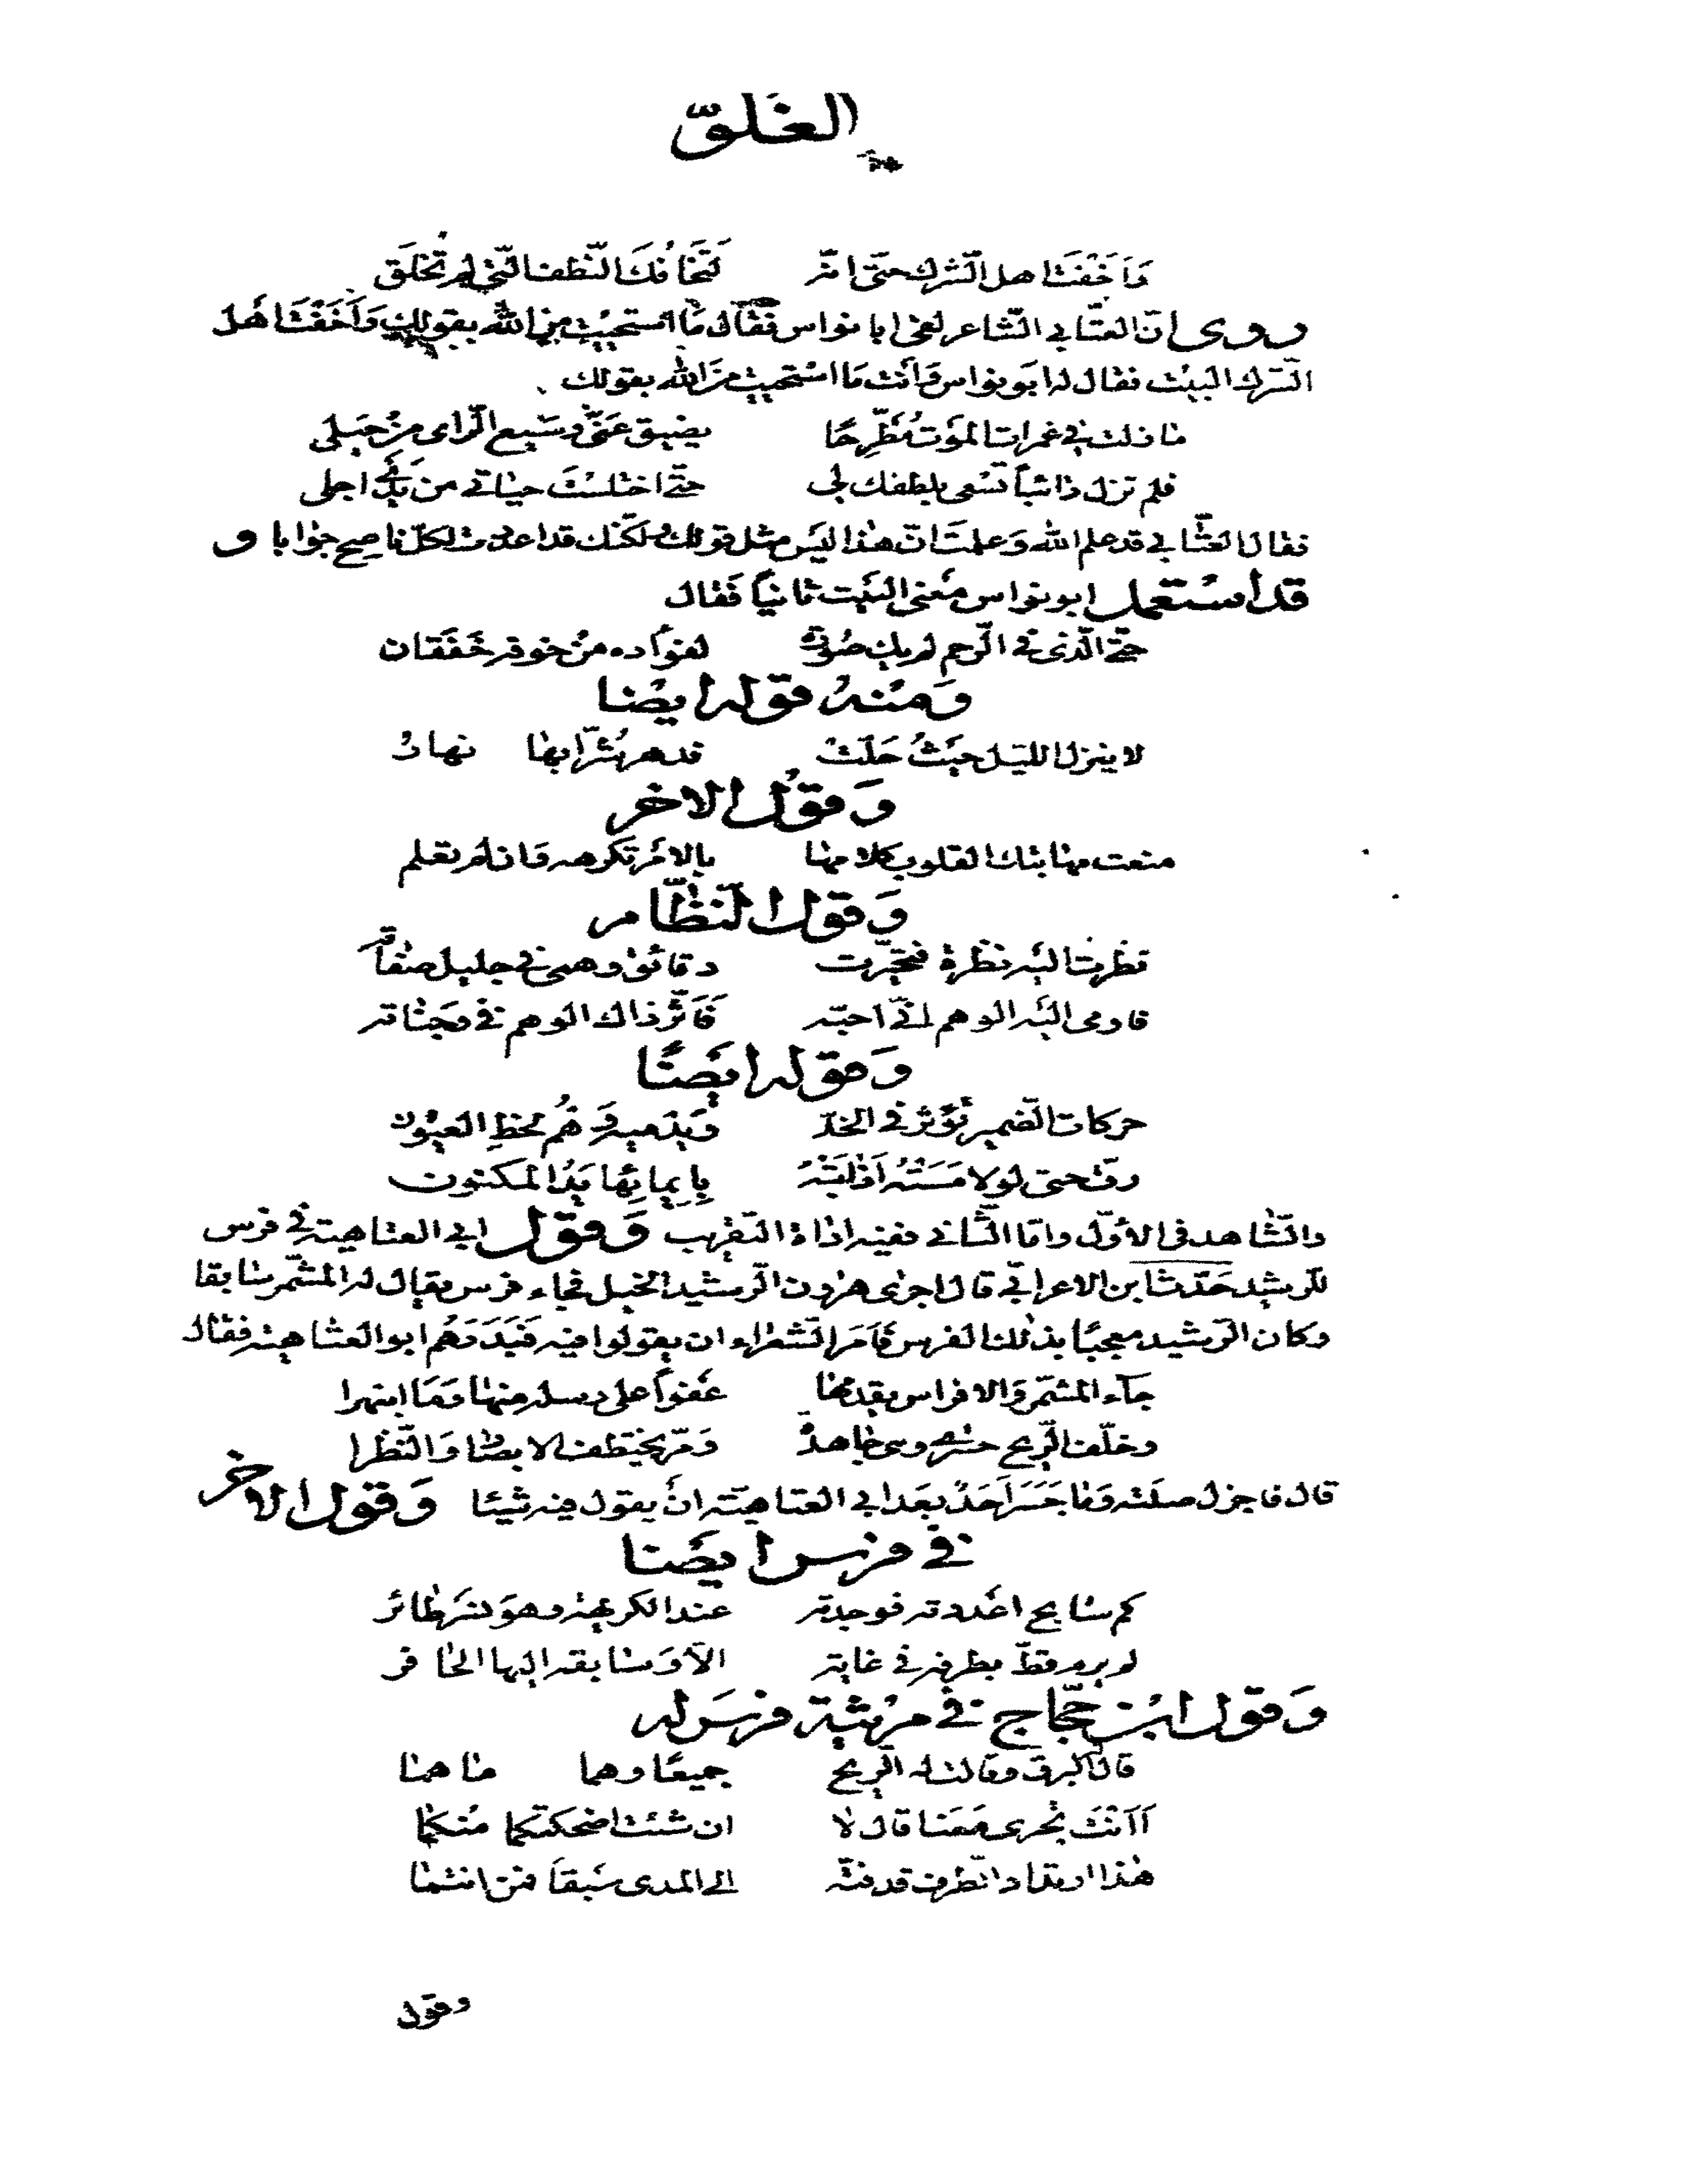 الغلوّ
وَاَخَفْتَ اهل الشّرك حتّى انّه لَتَخَافُكَ النّطف الّتي لم تخلق
روى انّ العتّابي الشّاعر لقى ابا نواس فَقَالَ مَا استحيَيْت مِنَ الله بقولك وَاَخَفْتَ اَهل
الشّرك البيْت فقال له ابو نواس وَاَنت مَا اسْتحييت مِنَ الله بقولك
ما زلت في غمرات الموْت مُطّرِحًا يضيق عَنّي وسَيع الرّاى مِنْ حِيَلي
فلم تزل دَائبًا تسْعى بلطفك لى حتّى اختلسْتَ حيَاتي من يَدَيْ اجلي
فقال العتّابي قد علم الله وَعلمتَ انّ هٰذا ليَس مثل قولك ولكنّك قد اعددت لكلّ ناصح جوابا و
قد اسْتعمل ابو نواس مَعنى البَيْت ثانيًا فَقال
حتّى الّذى في الرّحم لم يك صُورَةً لفؤاده منْ خوفه خَفَقان
وَمنْهُ قوله ايضا
لا ينزل الليَل حيْثُ حَلّتْ فدهر شُرَّابها نهارُ
وَقَوْل الاخر
منعت مهابتك القلوب كلامها بالامْر تكرهه وَان لم تعلم
وَقول النّظّام
نظرت اليْه نظرة فتحيّرت دقائق وهمى في جليل صفَاته
فاومى اليْه الوهم انّي احبّه فَاَثّر ذاك الوهم في وَجنَاته
وَقوله ايْضًا
حركات الضّمير تؤثر في الخدّ وَيدْميه وَهْمُ لحظِ العيُون
رقّ حتى لو لامَسَتْهُ اَذابَتْهُ بِايمائها يَدُ المكنون
والشّاهد في الاوّل وامّا الثّاني ففيه اداة التّقريب وَقول ابي العتاهية في فرس
للرّشيد حَدّث ابن الاعرابيّ قال اجرى هٰرون الرّشيد الخيل فجاء فرس يقال له المشمّر سابقا
وكان الرّشيد معجبًا بذٰلك الفرس فَاَمَر الشّعراء ان يقولوا فيه فَبَدَرَهُم ابو العتاهية فقال
جآء المشمّر وَالافراس يقدمها عَفوًا على رسله منها وَمَا انبهرا
وخلّف الرّيح حسرى وهى جاهدةٌ وَمرّ يختطف الابصار وَالنّظرا
قال فاجزل صلته وَما جَسَرَ اَحَدٌ بعَد ابي العتاهيّة انْ يقول فيه شيئا وَقول الاخر
في فرس ايضا
كم سابح اعْددته فوجدته عند الكريهة وهوَ نسَر طائر
لم يرم قطّ بطرفه في غاية الّا وَسابقه اليها الحافر
وَقول ابْن حَجّاج في مرْثية فرسَ له
قال له البرق وقالت له الرّيح جميعًا وهما ما هما
اَاَنْتَ تجْرى مَعَنا قال لا ان شئت اضحكتكما مُنكما
هٰذا ارتداد الطّرف قد فتّه الى المدى سَبقًا فمن انتما
وقول